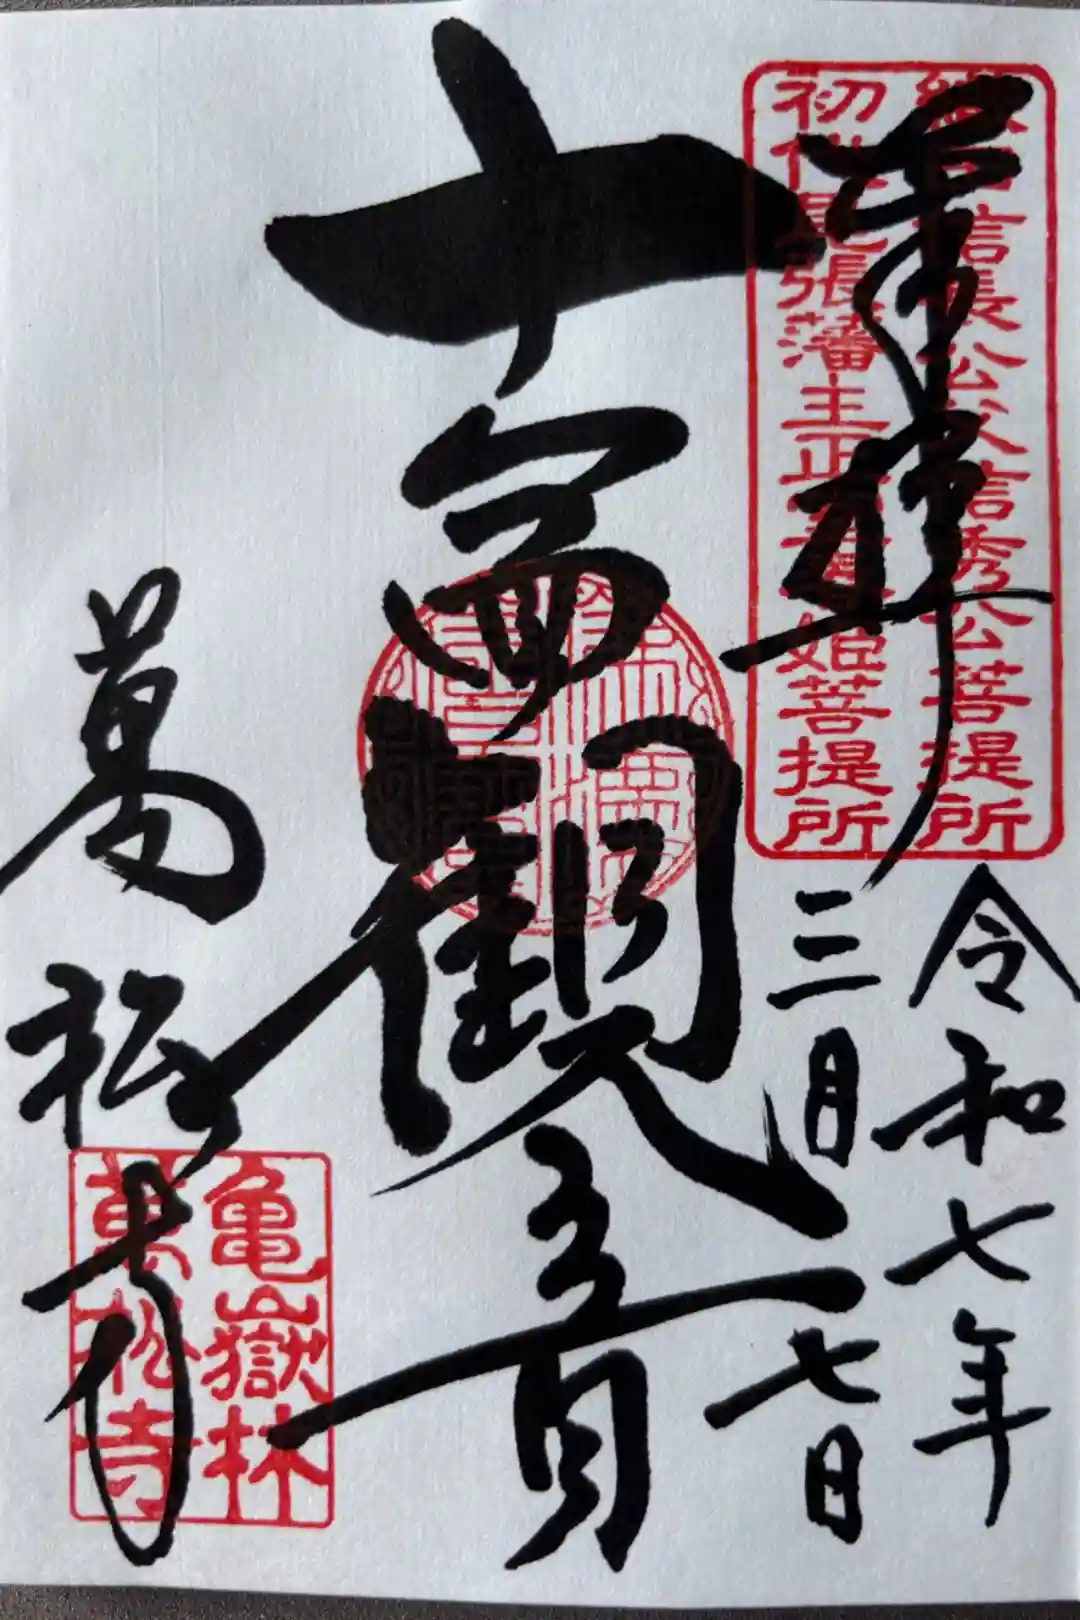 奉拝
織田信長公父信秀公菩提所
初代尾張藩主正室春姫菩提所
令和七年
三月七日
十一面観音
萬松寺
亀嶽林
萬松寺